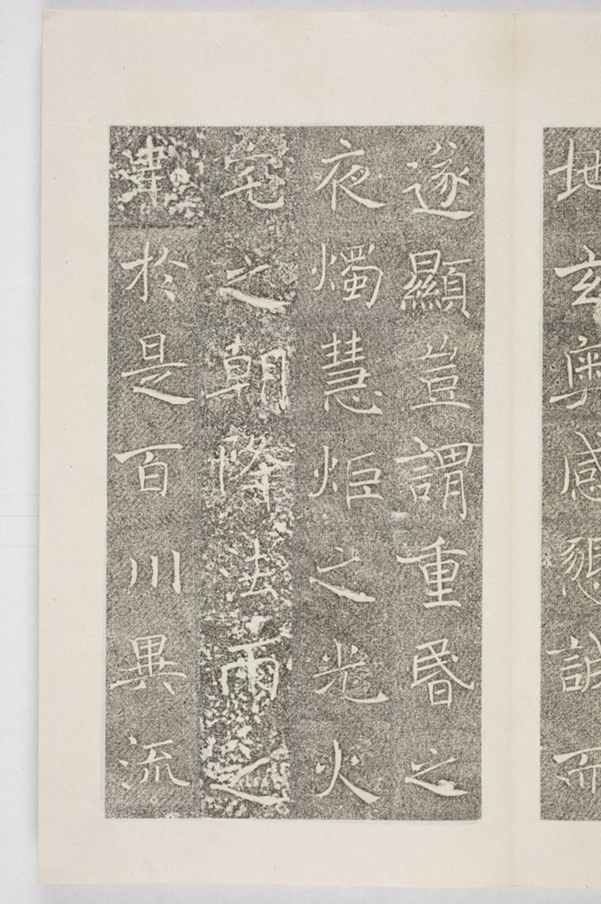 地玄奧感懇誠而
遂顯豈謂重昬之
夜燭慧炬之光火
宅之朝降法雨之
於是百川異流